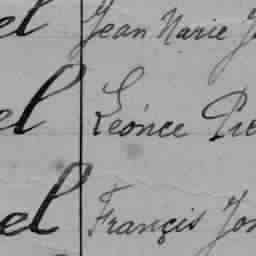 el Jean Marie J
el Léonce Pie
el Françis Jo